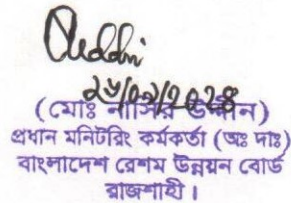 ২৬/০৯/২০২৪
(মোঃ নাসির উদ্দীন)
প্রধান মনিটরিং কর্মকর্তা (অঃ দাঃ)
বাংলাদেশ রেশম উন্নয়ন বোর্ড
রাজশাহী।